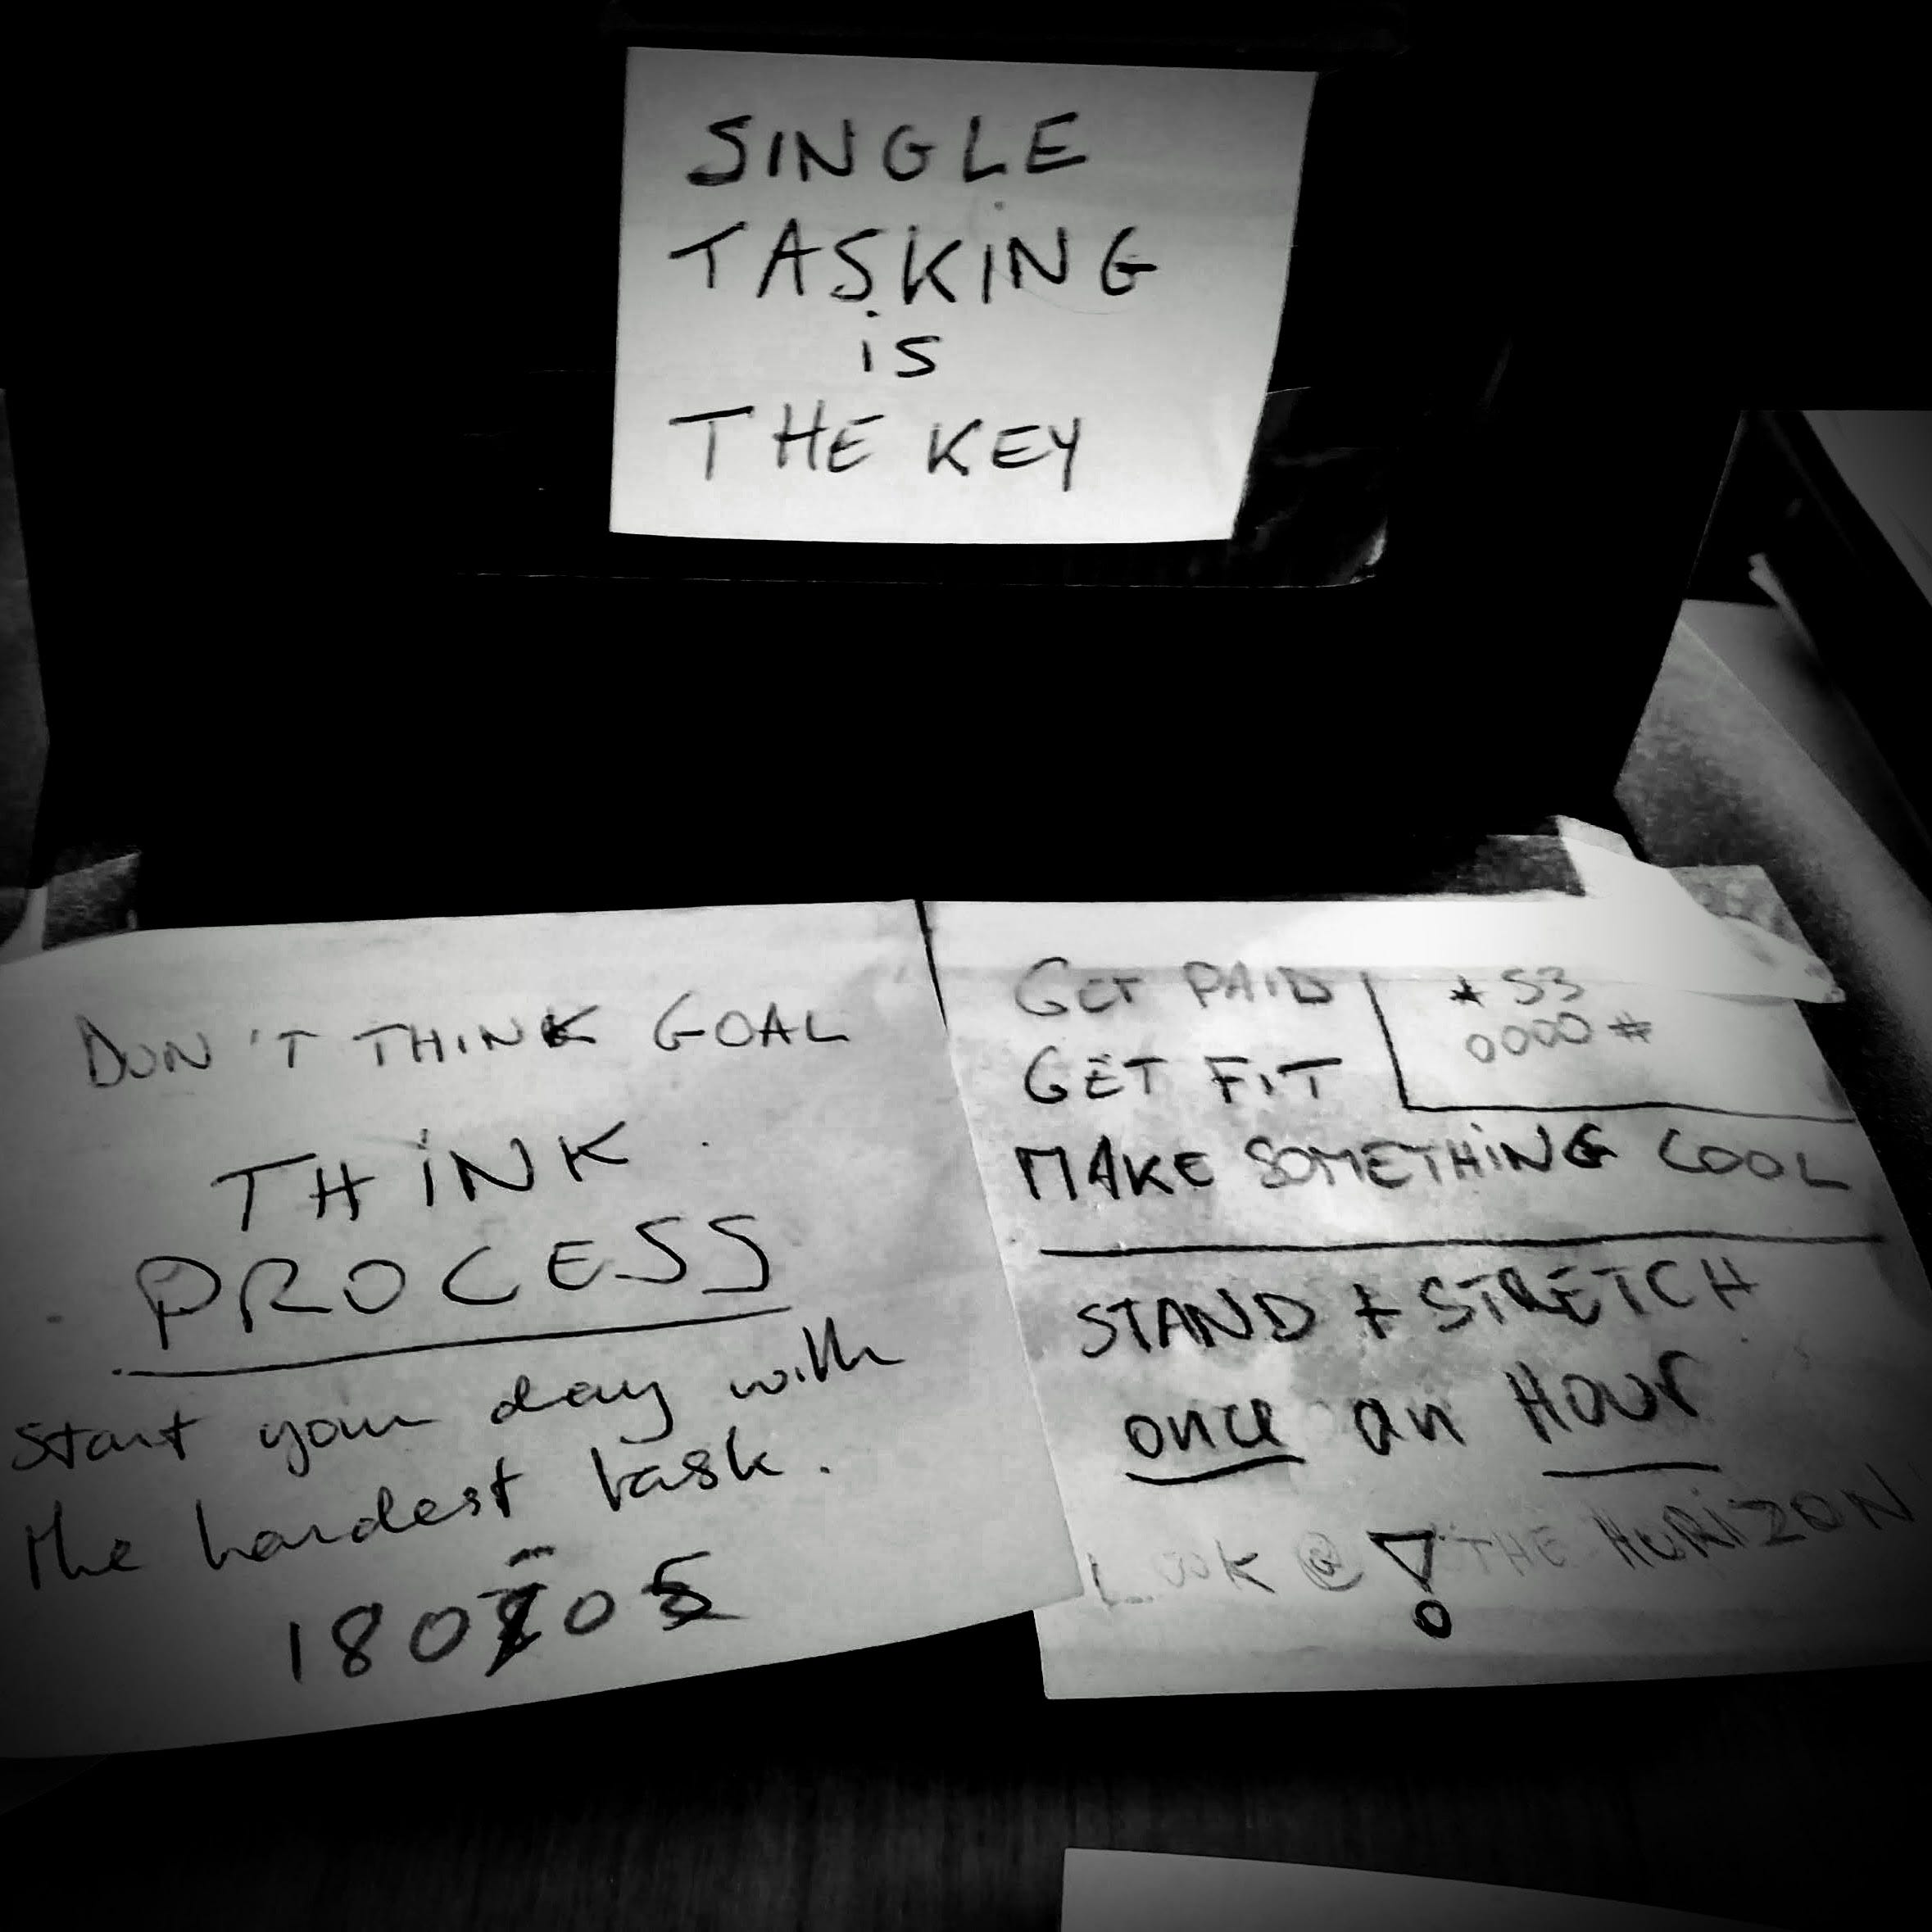 SINGLE
TASKING
is
THE KEY
DON'T THINK GOAL
THINK
PROCESS
Start your day with
the hardest task.
GET PAID
GET FIT
* 53
0000 #
MAKE SOMETHING COOL
STAND + STRETCH
once an Hour
LOOK @ THE HORIZON